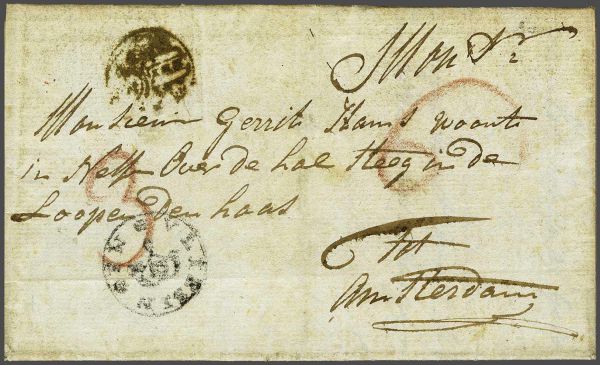 Mons r
Monsieur Gerrit Hams woont
in Ness Over de hal steeg in de
Loopen Den haas
3
tot
Amsterdam